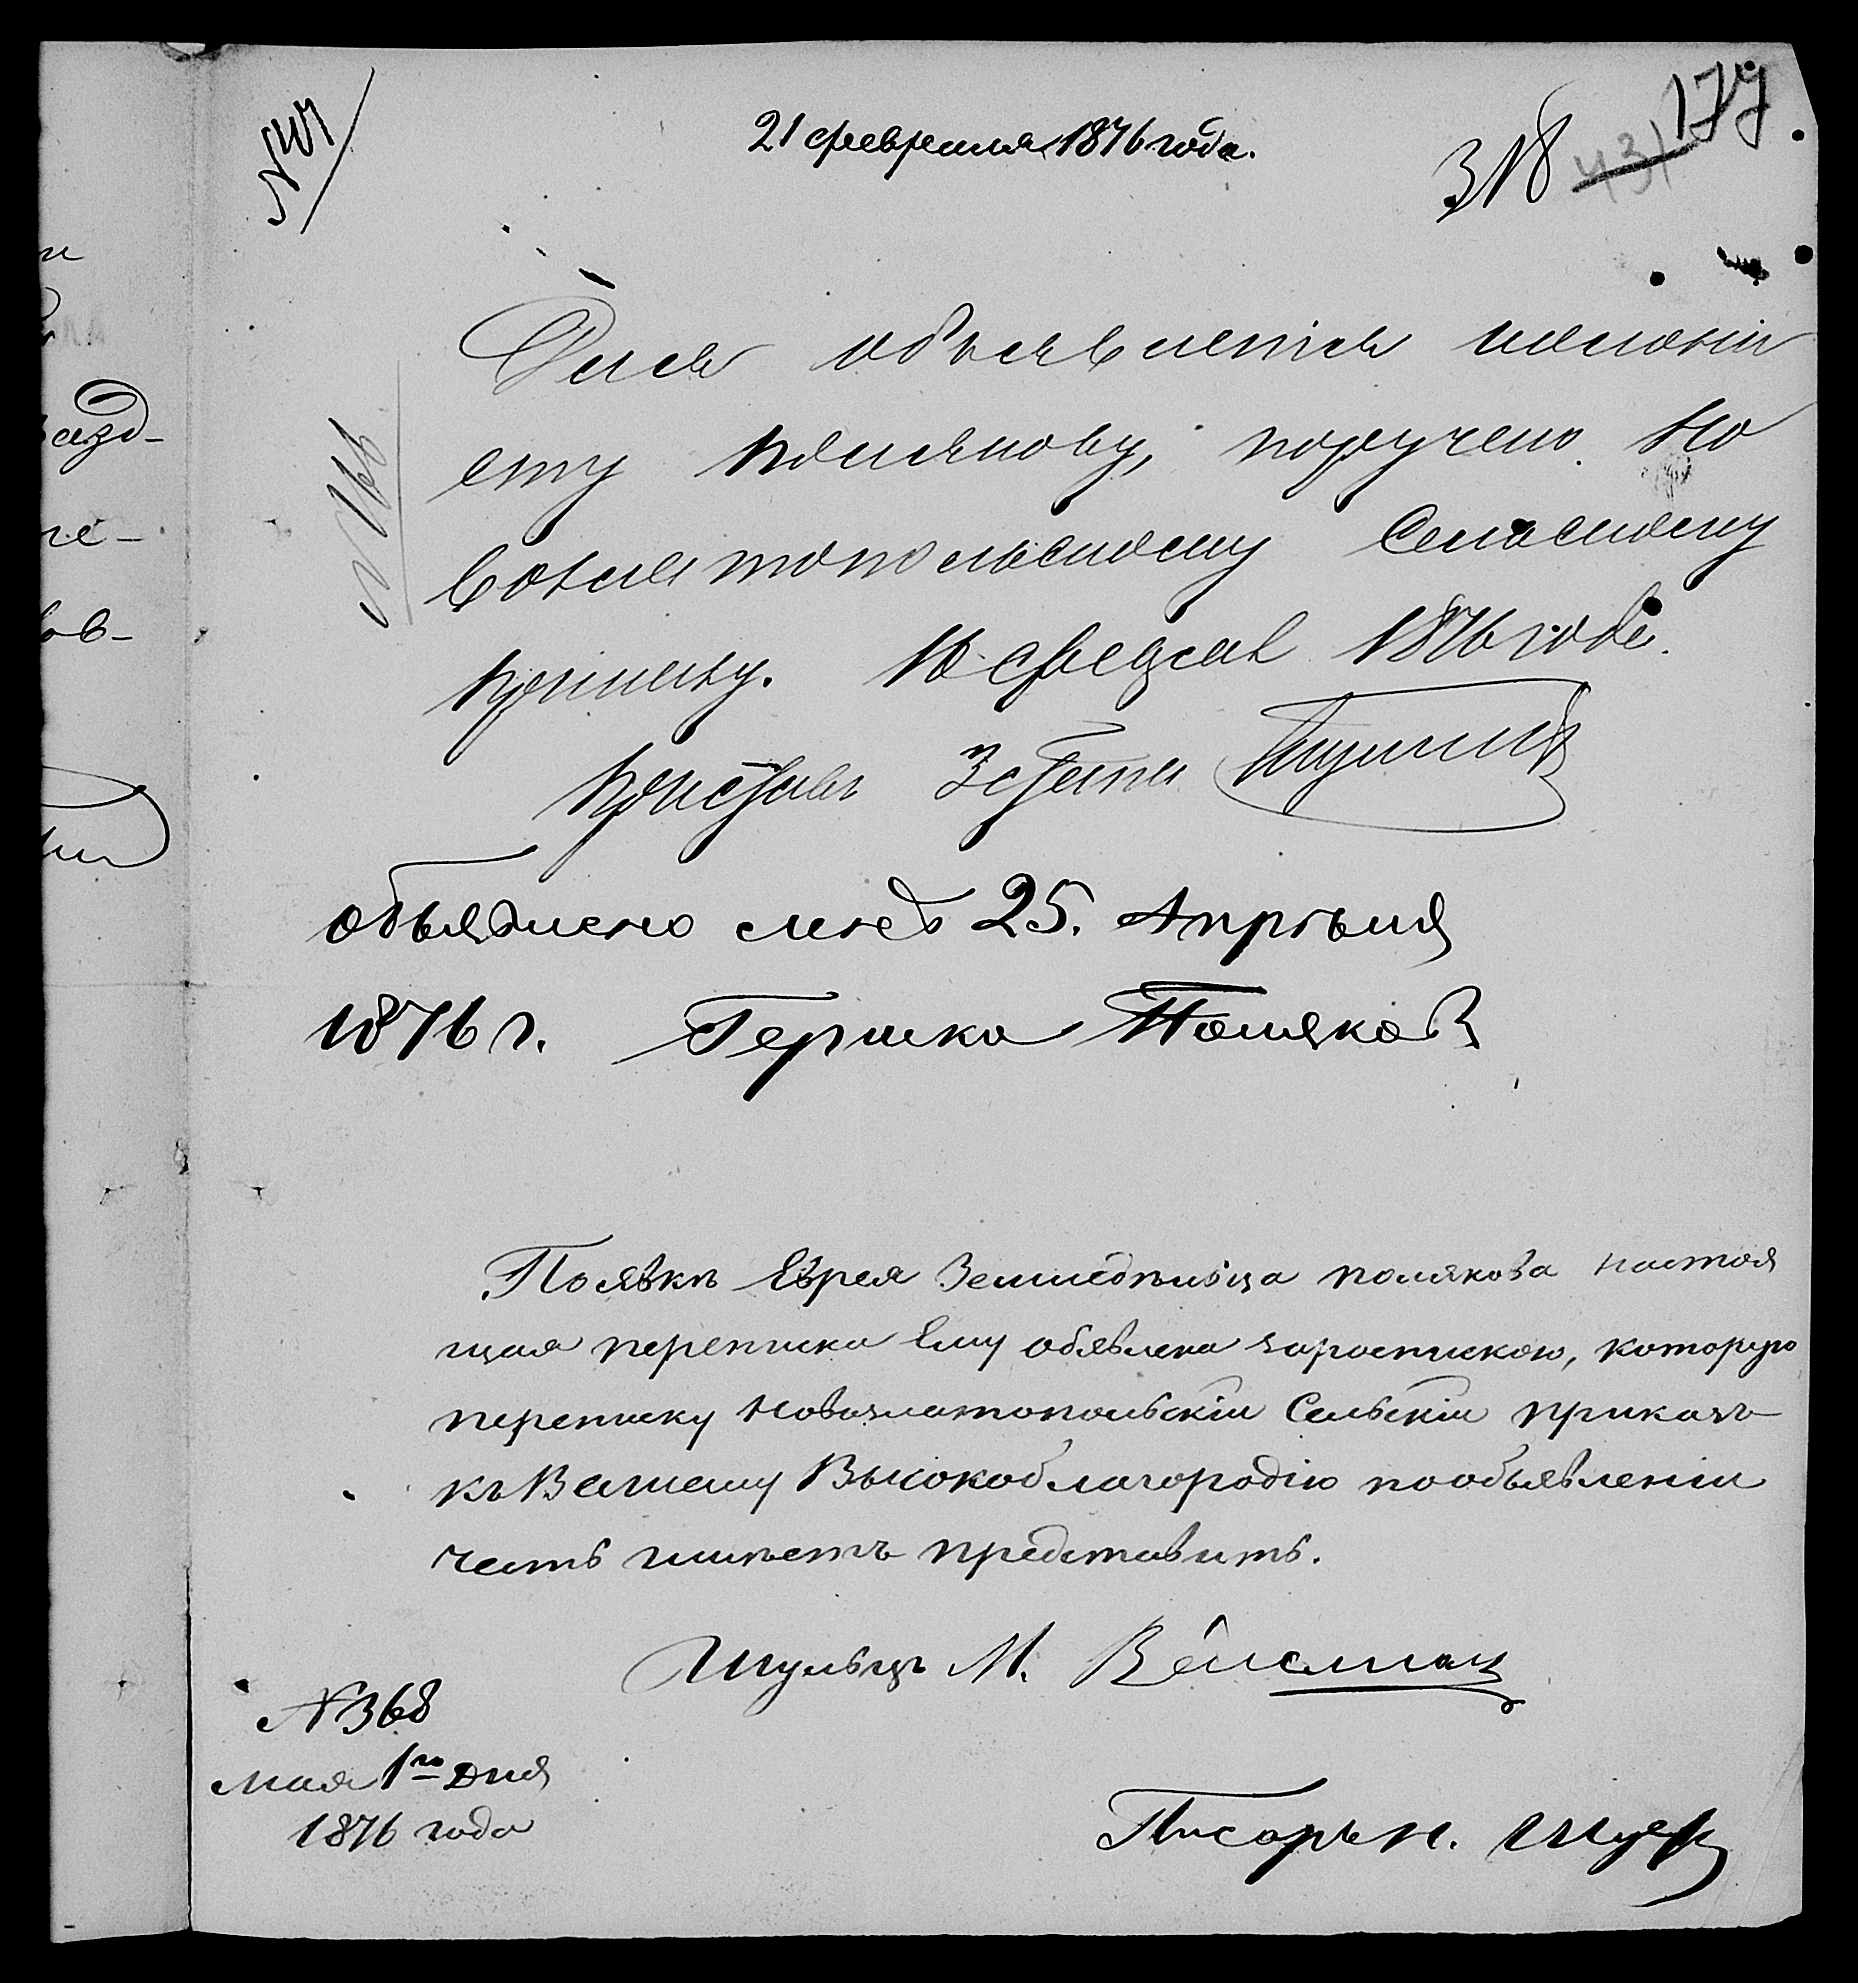 21 февраля 1876 года.
177.
318 431
Для объявленія колони
сту Полякову, поручено Но
возлатопольскому Сельскому
Приказу. 16 февраля 1876 года.
Приставъ 3 стана
N 166
объявлено мнѣ 25. Апрѣля
1876 г. Гершко Поляковъ
По явкѣ Еврея Земледѣльца полякова настоя
щая переписка Ему обявлена заростискою, которую
переписку Новозлатопольскій Сельскій приказъ
къ Вашему Высокоблагородію пообъявленіи
честь имѣетъ представить.
Шульцъ М. Вейсманъ
N 368
мая 1го дня
1876 года
Писарь Н. Шуеръ
азд-
че-
ов-